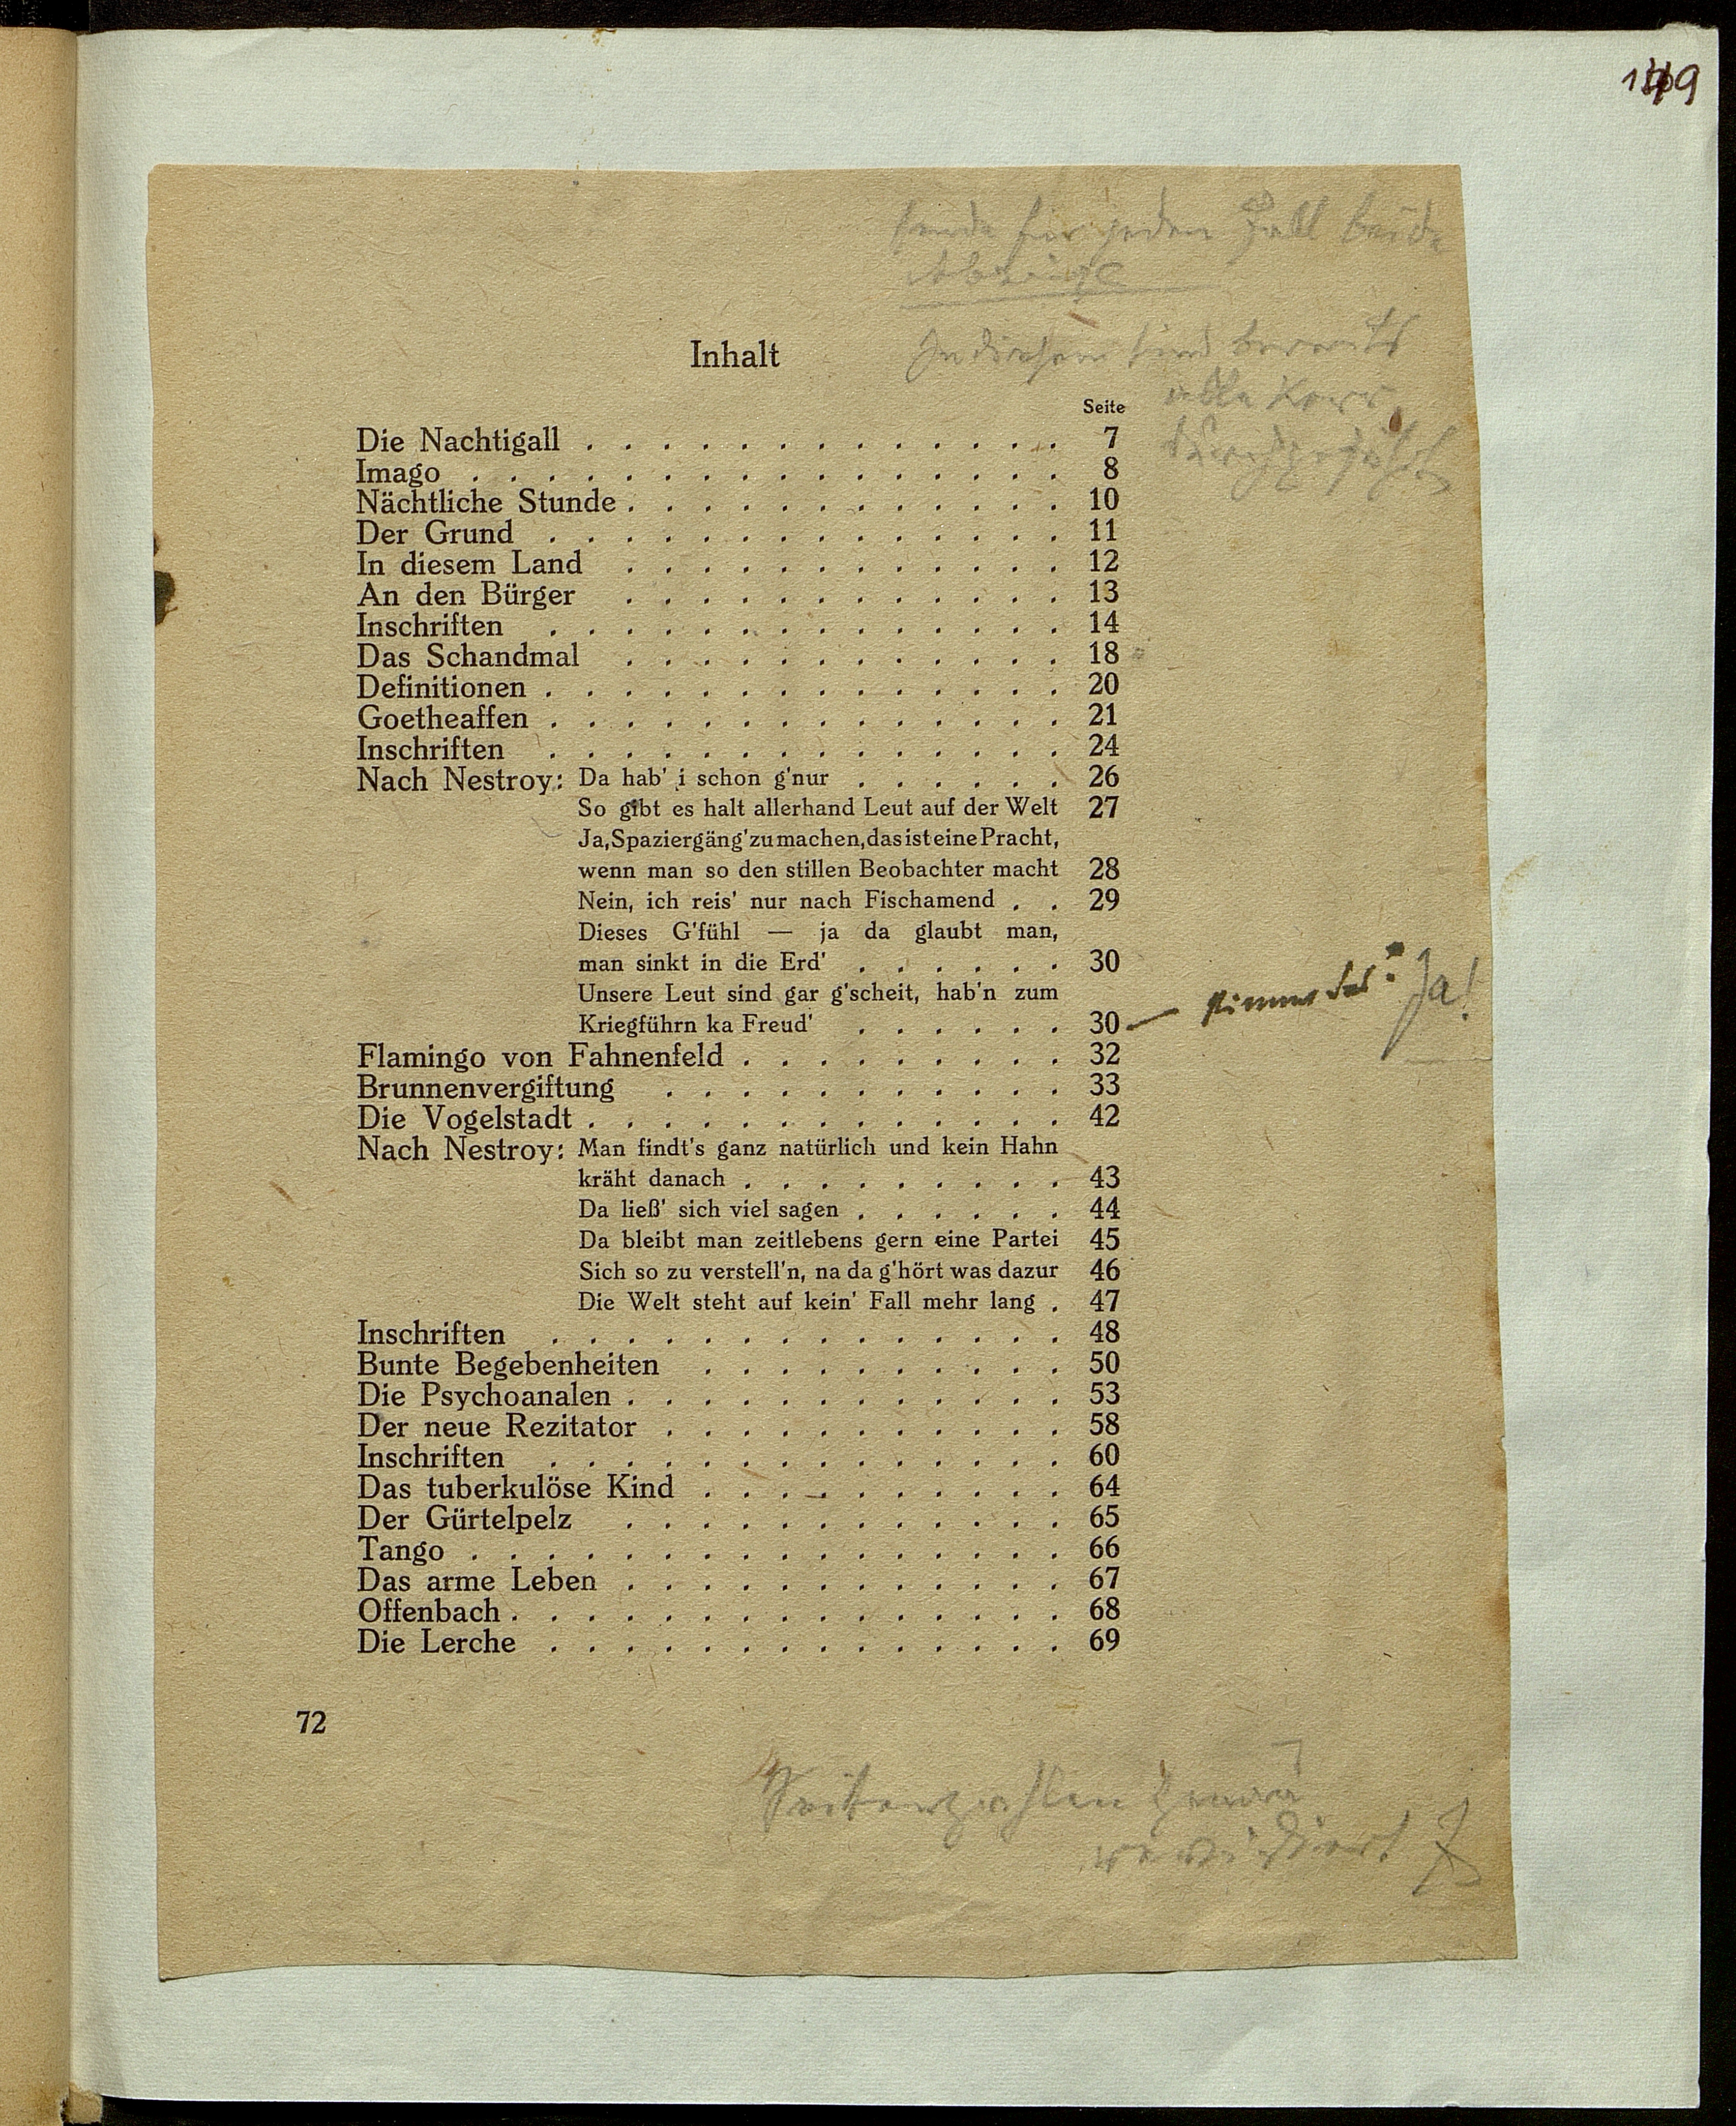 149
sende für jeden Fall beide
Abzüge
In diesem sind bereits
alle Korr.
durchgeführt
Inhalt
Seite
Die Nachtigall . . . . . . . . . . . . . 7
Imago . . . . . . . . . . . . . . . . 8
Nächtliche Stunde . . . . . . . . . . . . 10
Der Grund . . . . . . . . . . . . . . 11
In diesem Land . . . . . . . . . . . . 12
An den Bürger . . . . . . . . . . . . 13
Inschriften . . . . . . . . . . . . . . 14
Das Schandmal . . . . . . . . . . . . 18
Definitionen . . . . . . . . . . . . . . 20
Goetheaffen . . . . . . . . . . . . . . 21
Inschriften . . . . . . . . . . . . . . 24
Nach Nestroy: Da hab' i schon g'nur . . . . . . 26
So gibt es halt allerhand Leut auf der Welt 27
Ja, Spaziergäng' zu machen, das ist eine Pracht,
wenn man so den stillen Beobachter macht 28
Nein, ich reis' nur nach Fischamend . . 29
Dieses G'fühl — ja da glaubt man,
man sinkt in die Erd' . . . . . . 30
Unsere Leut sind gar g'scheit, hab'n zum
Kriegführn ka Freud' . . . . . . 30 — stimmt das? Ja!
Flamingo von Fahnenfeld . . . . . . . . . 32
Brunnenvergiftung . . . . . . . . . . . 33
Die Vogelstadt . . . . . . . . . . . . . 42
Nach Nestroy: Man findt's ganz natürlich und kein Hahn
kräht danach . . . . . . . . . 43
Da ließ' sich viel sagen . . . . . . 44
Da bleibt man zeitlebens gern eine Partei 45
Sich so zu verstell'n, na da g'hört was dazur 46
Die Welt steht auf kein' Fall mehr lang . 47
Inschriften . . . . . . . . . . . . . . 48
Bunte Begebenheiten . . . . . . . . . . 50
Die Psychoanalen . . . . . . . . . . . . 53
Der neue Rezitator . . . . . . . . . . . 58
Inschriften . . . . . . . . . . . . . . 60
Das tuberkulöse Kind . . . . . . . . . . 64
Der Gürtelpelz . . . . . . . . . . . . 65
Tango . . . . . . . . . . . . . . . . 66
Das arme Leben . . . . . . . . . . . . 67
Offenbach . . . . . . . . . . . . . . . 68
Die Lerche . . . . . . . . . . . . . . 69
72
Seitenzahlen genau
revidiert